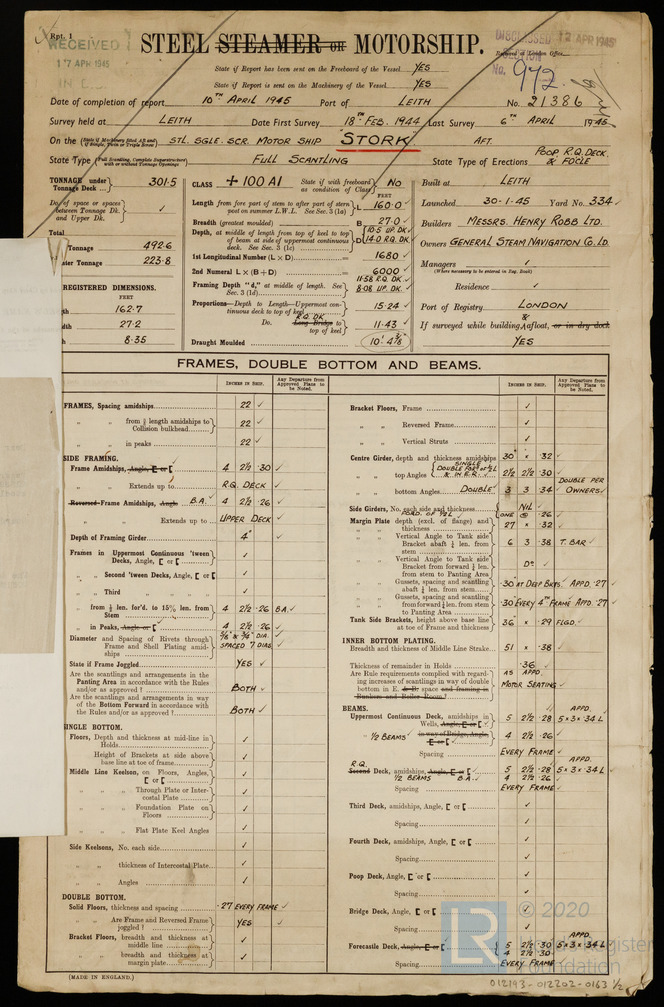 Rpt. 1
RECEIVED
17 APR 1945
STEEL STEAMER OR MOTORSHIP.
DISCLASSED 12 APR 1945
SECTION
No. 972
Received at London Office
State if Report has been sent on the Freeboard of the Vessel YES
State if Report is sent on the Machinery of the Vessel YES
Date of completion of report 10TH APRIL 1945 Port of LEITH No. 21386
Survey held at LEITH Date First Survey 18TH FEB. 1944 Last Survey 6TH APRIL 1945
On the (State if Machinery fitted Aft and if Single, Twin or Triple Screw) STL. SGLE. SCR. MOTOR SHIP "STORK" AFT.
State Type (Full Scantling, Complete Superstructure with or without Tonnage Openings) FULL SCANTLING State Type of Erections POOP R.Q. DECK. & FOCLE
TONNAGE under Tonnage Deck ... 301.5
Do. of space or spaces between Tonnage Dk. and Upper Dk. ✓
Total
Tonnage 492.6
Tonnage 223.8
REGISTERED DIMENSIONS.
FEET
162.7
27.2
8.35
CLASS + 100 A1 State if with freeboard as condition of Class No
FEET
Length from fore part of stem to after part of stern post on summer L.W.L. See Sec. 3 (1a) L 160.0 ✓
Breadth (greatest moulded) B 27.0 ✓
Depth, at middle of length from top of keel to top of beam at side of uppermost continuous deck. See Sec. 3 (1c) D 10.5 UP. DK 14.0 R.Q. DK ✓
1st Longitudinal Number (L × D) = 1680 ✓
2nd Numeral L × (B + D) = 6000 ✓
Framing Depth "d," at middle of length. See Sec. 3 (1d) 11.58 R.Q. DK 8.08 UP. DK ✓
Proportions—Depth to Length—Uppermost continuous deck to top of keel 15.24 ✓
Do. R.Q. DK Long Bridge to top of keel 11.43 ✓
Draught Moulded 10'. 4 3/8" ✓
Built at LEITH
Launched 30-1-45 Yard No. 334 ✓
Builders MESSRS. HENRY ROBB LTD.
Owners GENERAL STEAM NAVIGATION CO. LD.
Managers ✓
(Where necessary to be entered in Reg. Book)
Residence ✓
Port of Registry LONDON
If surveyed while building, & afloat, or in dry dock
YES
FRAMES, DOUBLE BOTTOM AND BEAMS.
INCHES IN SHIP. Any Departure from Approved Plans to be Noted.
FRAMES, Spacing amidships 22 ✓
" " from ⅗ length amidships to Collision bulkhead 22 ✓
" " in peaks 22 ✓
SIDE FRAMING.
Frame Amidships, Angle, [ or [ 4 2½ .30 ✓
" " Extends up to R.Q. DECK ✓
Reversed Frame Amidships, Angle B.A. ✓ 4 2½ .26 ✓
" " Extends up to UPPER DECK ✓
Depth of Framing Girder 4" ✓
Frames in Uppermost Continuous 'tween Decks, Angle, [ or [ ✓
" " Second 'tween Decks, Angle, [ or [ ✓
" " Third " " " " ✓
" from ⅗ len. for'd. to 15% len. from Stem 4 2½ .26 B.A. ✓
" in Peaks, Angle or [ 4 2½ .26 ✓
Diameter and Spacing of Rivets through Frame and Shell Plating amidships 5/8" & 3/4" DIA. SPACED 7 DIAS ✓
State if Frame Joggled YES ✓
Are the scantlings and arrangements in the Panting Area in accordance with the Rules and/or as approved ? BOTH ✓
Are the scantlings and arrangements in way of the Bottom Forward in accordance with the Rules and/or as approved ? BOTH ✓
SINGLE BOTTOM.
Floors, Depth and thickness at mid-line in Holds ✓
" Height of Brackets at side above base line at toe of frame ✓
Middle Line Keelson, on Floors, Angles, [ or [ ✓
" " " Through Plate or Intercostal Plate ✓
" " " Foundation Plate on Floors ✓
" " " Flat Plate Keel Angles ✓
Side Keelsons, No. each side ✓
" " thickness of Intercostal Plate ✓
" " Angles ✓
DOUBLE BOTTOM.
Solid Floors, thickness and spacing .27 EVERY FRAME ✓
" " Are Frame and Reversed Frame joggled ? YES ✓
Bracket Floors, breadth and thickness at middle line ✓
" " breadth and thickness at margin plate ✓
INCHES IN SHIP. Any Departure from Approved Plans to be Noted.
Bracket Floors, Frame ✓
" " Reversed Frame ✓
" " Vertical Struts ✓
Centre Girder, depth and thickness amidships 30 × .32 ✓
" " top Angles SINGLE DOUBLE FOR'D ½ L & IN E.R. ✓ 2½ 2½ .30
" " bottom Angles DOUBLE ✓ 3 3 .34 DOUBLE PER OWNERS ✓
Side Girders, No. each side and thickness NIL ✓
FORD. OF ½ L ONE @ .26 ✓
Margin Plate depth (excl. of flange) and thickness 27 × .32 ✓
" " Vertical Angle to Tank side Bracket abaft ¼ len. from stem 6 3 .38 T. BAR ✓
" " Vertical Angle to Tank side Bracket from forward ¼ len. from stem to Panting Area Do ✓
" " Gussets, spacing and scantling abaft ¼ len. from stem .30 AT DEEP BKTS. APPD .27 ✓
" " Gussets, spacing and scantling from forward ¼ len. from stem to Panting Area .30 EVERY 4TH FRAME APPD .27 ✓
Tank Side Brackets, height above base line at toe of Frame and thickness 36 × .29 FLGD. ✓
INNER BOTTOM PLATING.
Breadth and thickness of Middle Line Strake 51 × .38 ✓
Thickness of remainder in Holds .36 ✓
Are Rule requirements complied with regarding increases of scantlings in way of double bottom in E. & B. space and framing in Bunkers and Boiler Room ? AS APPD. MOTOR SEATING ✓
BEAMS.
Uppermost Continuous Deck, amidships in Wells, Angle, [ or [ 5 2½ .28 APPD. 5 × 3 × .34 L ✓
" ½ BEAMS in way of Bridge, Angle, [ or [ 4 2½ .26 ✓
Spacing EVERY FRAME ✓
R.Q. Second Deck, amidships, Angle, [ or [ 5 2½ .28 APPD. 5 × 3 × .34 L ✓
½ BEAMS B.A. ✓ 4 2½ .26 ✓
Spacing EVERY FRAME ✓
Third Deck, amidships, Angle, [ or [ ✓
Spacing ✓
Fourth Deck, amidships, Angle, [ or [ ✓
Spacing ✓
Poop Deck, Angle, [ or [ ✓
Spacing ✓
Bridge Deck, Angle, [ or [ ✓
Spacing ✓
Forecastle Deck, Angle, [ or [ 5 2½ .30 APPD. 5 × 3 × .34 L ✓
4 2½ .30
Spacing EVERY FRAME ✓
(MADE IN ENGLAND.)
© 2020
LR
Register
Foundation
012193-012202-0163 ½